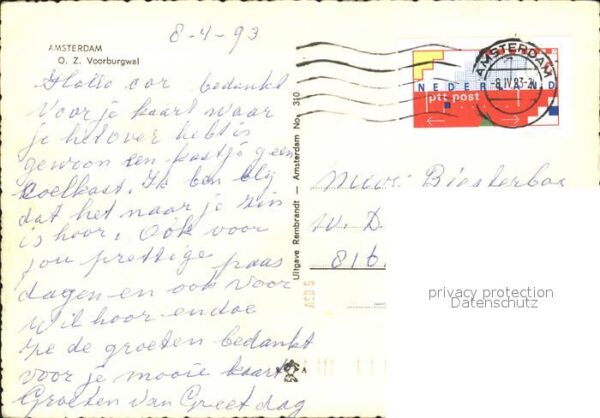 8-4-93
AMSTERDAM
O. Z. Voorburgwal
Hallo cor bedankt
voor je kaart waar
je het over hebt is
gewoon een kastje geen
koelkast. Ik ben bly
dat het naar je zin
is hoor. Ook voor
jou prettige paas
dagen en ook voor
wil hoor en doe
ze de groeten bedankt
voor je mooie kaart
Groeten van Greet dag
Uitgave Rembrandt — Amsterdam No. 310
AMSTERDAM
-8.IV.93-2
NEDERLAND
ptt post
mevr. Biesterbos
W. D
816
privacy protection
Datenschutz